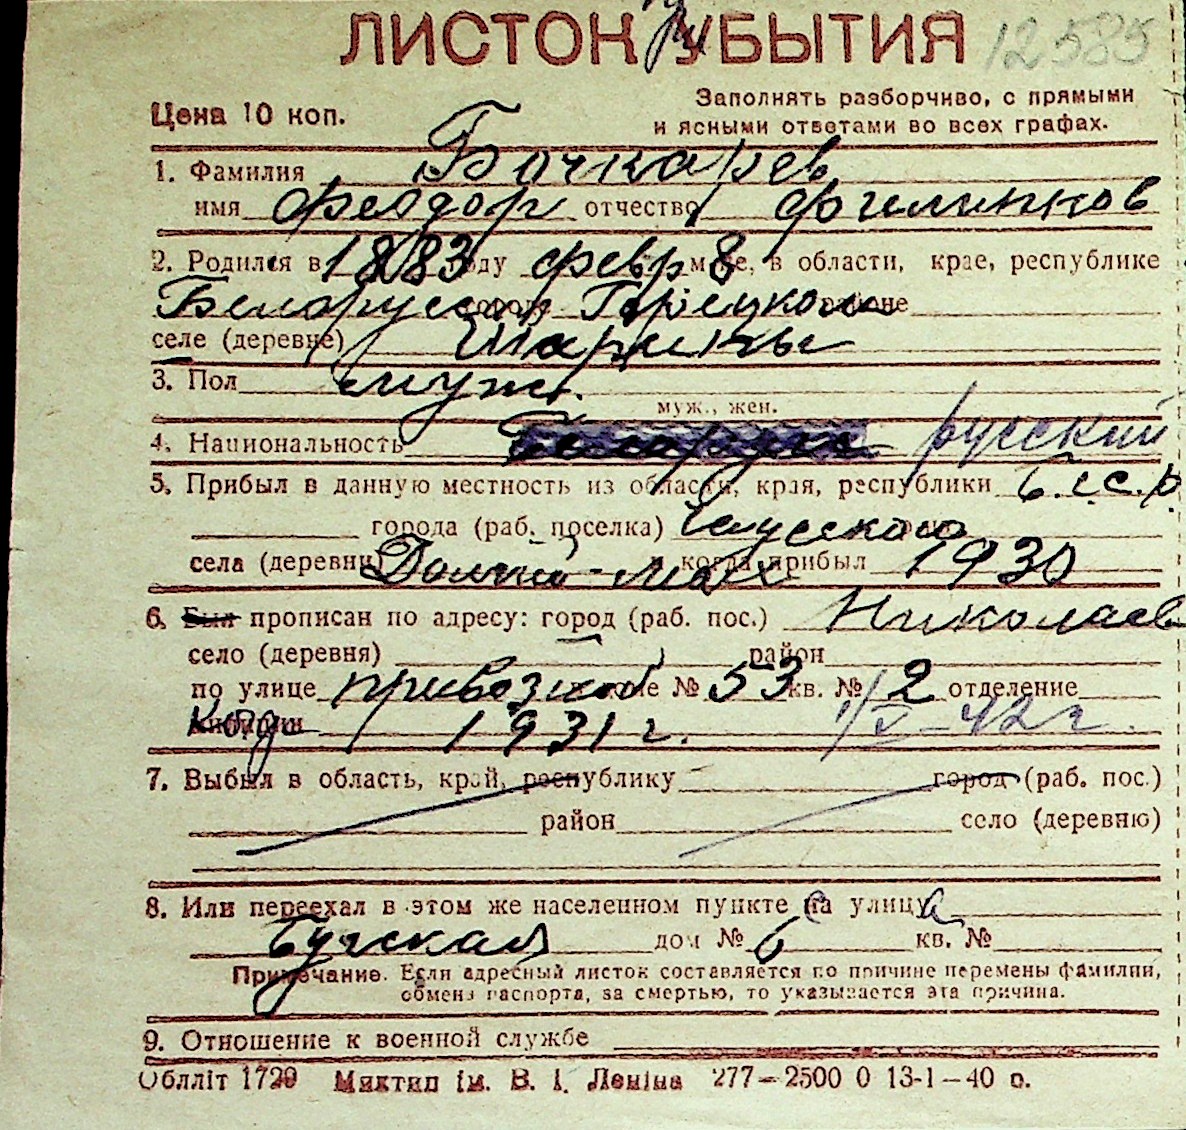 ЛИСТОК при УБЫТИЯ 12585
Цена 10 коп.
Заполнять разборчиво, с прямыми
и ясными ответами во всех графах.
1. Фамилия Бочкарев
имя Феодор отчество Филиппов
2. Родился в 1883 году февр 8 м-це, в области, крае, республике
Белоруссия городе Горецком районе
селе (деревне) Шарипы
3. Пол муж.
муж., жен.
4. Национальность Белорус русский
5. Прибыл в данную местность из области, края, республики б.с.с.р.
города (раб. поселка)
села (деревни) Долгий-Мох и когда прибыл 1930
6. Был прописан по адресу: город (раб. пос.) Николаев
село (деревня) район
по улице привозной доме № 53 кв. № 2 отделение
когда 1931 г. 1/V-42 г.
7. Выбыл в область, край, республику город (раб. пос.)
район село (деревню)
8. Или переехал в этом же населенном пункте на улицу
Бугская дом № 6 кв. №
Примечание. Если адресный листок составляется по причине перемены фамилии,
обмена паспорта, за смертью, то указывается эта причина.
9. Отношение к военной службе
Облліт 1729 Миктип ім. В. І. Леніна 277—2500 0 13-1—40 р.